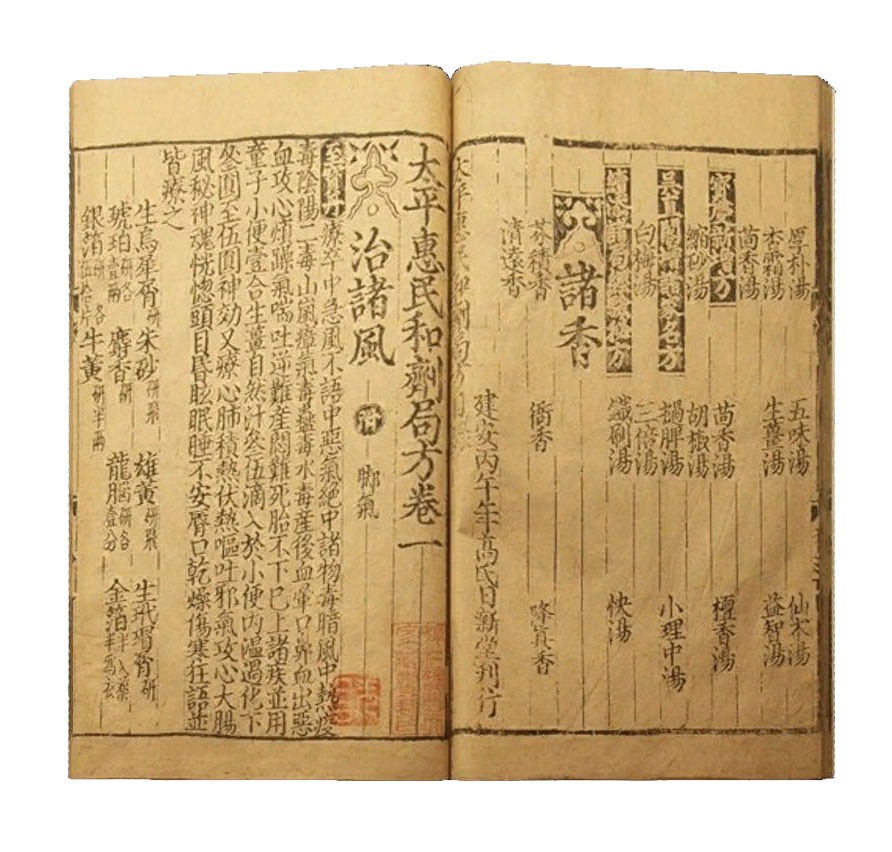 厚朴湯 五味湯 仙术湯
杏霜湯 生薑湯 益智湯
茴香湯
寶慶新增方 茴香湯 檀香湯
縮砂湯 胡椒湯
吳直閣增諸家名方 撾脾湯 小理中湯
白梅湯 三倍湯
續添諸局經驗秘方 鐵刷湯 快湯
諸香
芬積香 衙香 降真香
清遠香
建安丙午年高氏日新堂刊行
太平惠民和劑局方目錄
太平惠民和劑局方卷一
治諸風 附 脚氣
至寶丹 療卒中急風不語中惡氣絶中諸物毒暗風中熱疫
毒陰陽二毒山嵐瘴氣毒蠱毒水毒産後血暈口鼻血出惡
血攻心煩躁氣喘吐逆難産悶亂死胎不下已上諸疾並用
童子小便壹合生薑自然汁叁伍滴入於小便内温過化下
叁圓至伍圓神効又療心肺積熱伏熱嘔吐邪氣攻心大腸
風秘神魂恍惚頭目昏眩眠睡不安脣口乾燥傷寒狂語並
皆療之
生烏犀屑研 朱砂研飛 雄黃研飛 生玳瑁屑研
琥珀研各壹兩 麝香研 龍腦研各壹分 金箔半入藥半為衣
銀箔研各伍拾片 牛黃研半兩